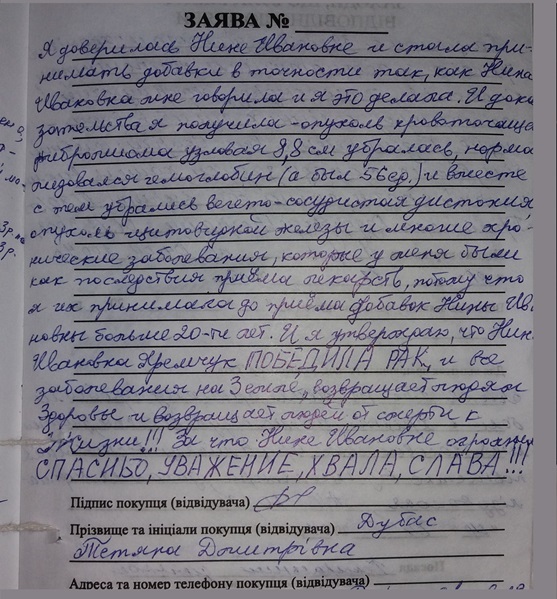 ЗАЯВА №
Я доверилась Нине Ивановне и стала при-
нимать добавки в точности так, как Нина
Ивановна мне говорила и я это делала. И дока
зательства я получила - опухоль кровоточаща
фибромиома узловая 8,8 см убралась, норма
лизовался гемоглобин (а был 56 ед.) и вместе
с тем убрались вегето-сосудистая дистония
опухоль щитовидной железы и многие хро-
нические заболевания, которые у меня были
как последствия приёма лекарств, потому что
я их принимала до приёма добавок Нины Ив
новны больше 20-ти лет. И я утверждаю, что Нин
Ивановна Яремчук ПОБЕДИЛА РАК, и все
заболевания на Земле, возвращает людям
Здоровье и возвращает людей от смерти к
Жизни!!! За что Нине Ивановне огромн
СПАСИБО, УВАЖЕНИЕ, ХВАЛА, СЛАВА!!!
Підпис покупця (відвідувача)
Прізвище та ініціали покупця (відвідувача) Дубас
Тетяна Дмитрівна
Адреса та номер телефону покупця (відвідувача)